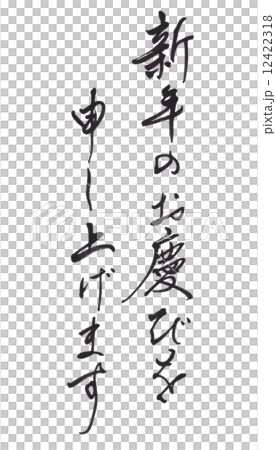 新年のお慶びを
申し上げます
PIXTA
pixta.jp - 12422318